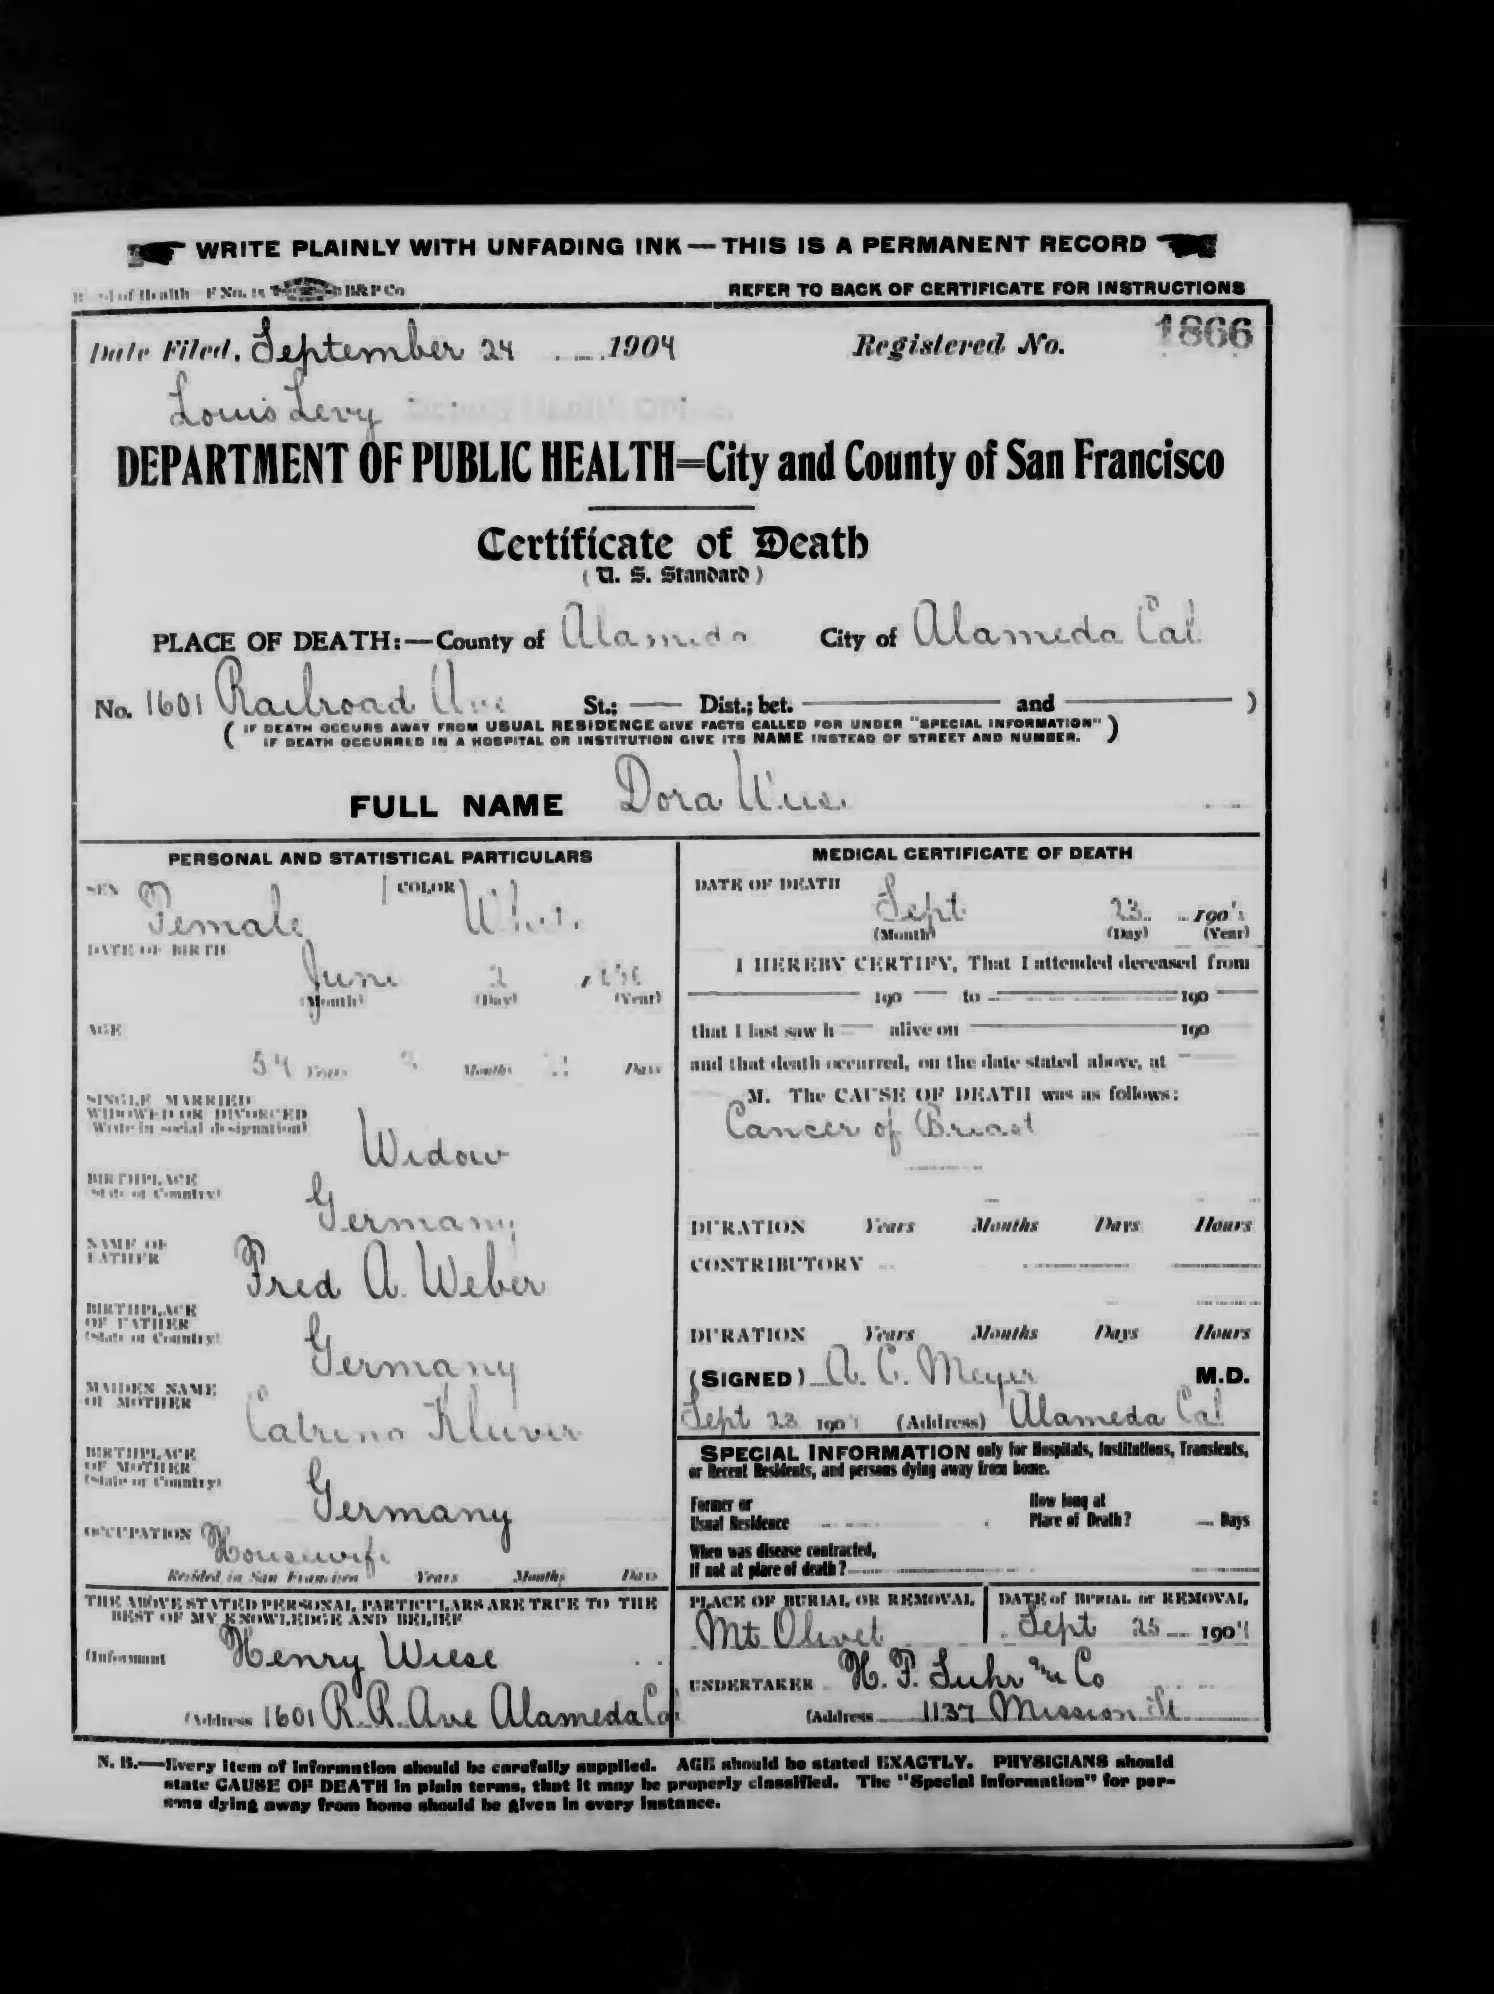 WRITE PLAINLY WITH UNFADING INK — THIS IS A PERMANENT RECORD
of Health F No. 15 B&P Co REFER TO BACK OF CERTIFICATE FOR INSTRUCTIONS
Date Filed, September 24 1904 Registered No. 1866
Louis Levy Deputy Health Officer
DEPARTMENT OF PUBLIC HEALTH=City and County of San Francisco
Certificate of Death
(U. S. Standard)
PLACE OF DEATH:—County of Alameda City of Alameda Cal
No. 1601 Railroad Ave St.; — Dist.; bet. — and — )
( IF DEATH OCCURS AWAY FROM USUAL RESIDENCE GIVE FACTS CALLED FOR UNDER "SPECIAL INFORMATION" )
IF DEATH OCCURRED IN A HOSPITAL OR INSTITUTION GIVE ITS NAME INSTEAD OF STREET AND NUMBER.
FULL NAME Dora Wiese
PERSONAL AND STATISTICAL PARTICULARS
SEX Female COLOR White
DATE OF BIRTH
June 2
(Month) (Day) (Year)
AGE
54 Years Months Days
SINGLE MARRIED
WIDOWED OR DIVORCED
(Write in social designation)
Widow
BIRTHPLACE
(State or Country)
Germany
NAME OF
FATHER
Fred A. Weber
BIRTHPLACE
OF FATHER
(State or Country)
Germany
MAIDEN NAME
OF MOTHER
Catrina Kluver
BIRTHPLACE
OF MOTHER
(State or Country)
Germany
OCCUPATION Housewife
Resided in San Francisco Years Months Days
THE ABOVE STATED PERSONAL PARTICULARS ARE TRUE TO THE
BEST OF MY KNOWLEDGE AND BELIEF
(Informant Henry Wiese
(Address 1601 R.R. Ave Alameda Cal
MEDICAL CERTIFICATE OF DEATH
DATE OF DEATH
Sept 23 1904
(Month) (Day) (Year)
I HEREBY CERTIFY, That I attended deceased from
190 — to — 190 —
that I last saw h — alive on — 190
and that death occurred, on the date stated above, at —
M. The CAUSE OF DEATH was as follows:
Cancer of Breast
DURATION Years Months Days Hours
CONTRIBUTORY
DURATION Years Months Days Hours
(SIGNED) A. C. Meyer M.D.
Sept 23 1904 (Address) Alameda Cal
SPECIAL INFORMATION only for Hospitals, Institutions, Transients,
or Recent Residents, and persons dying away from home.
Former or
Usual Residence
How long at
Place of Death? Days
When was disease contracted,
If not at place of death?
PLACE OF BURIAL OR REMOVAL
Mt Olivet
DATE of BURIAL or REMOVAL
Sept 25 1904
UNDERTAKER H. F. Suhr & Co
(Address 1137 Mission St
N. B.—Every item of information should be carefully supplied. AGE should be stated EXACTLY. PHYSICIANS should
state CAUSE OF DEATH in plain terms, that it may be properly classified. The "Special Information" for per-
sons dying away from home should be given in every instance.